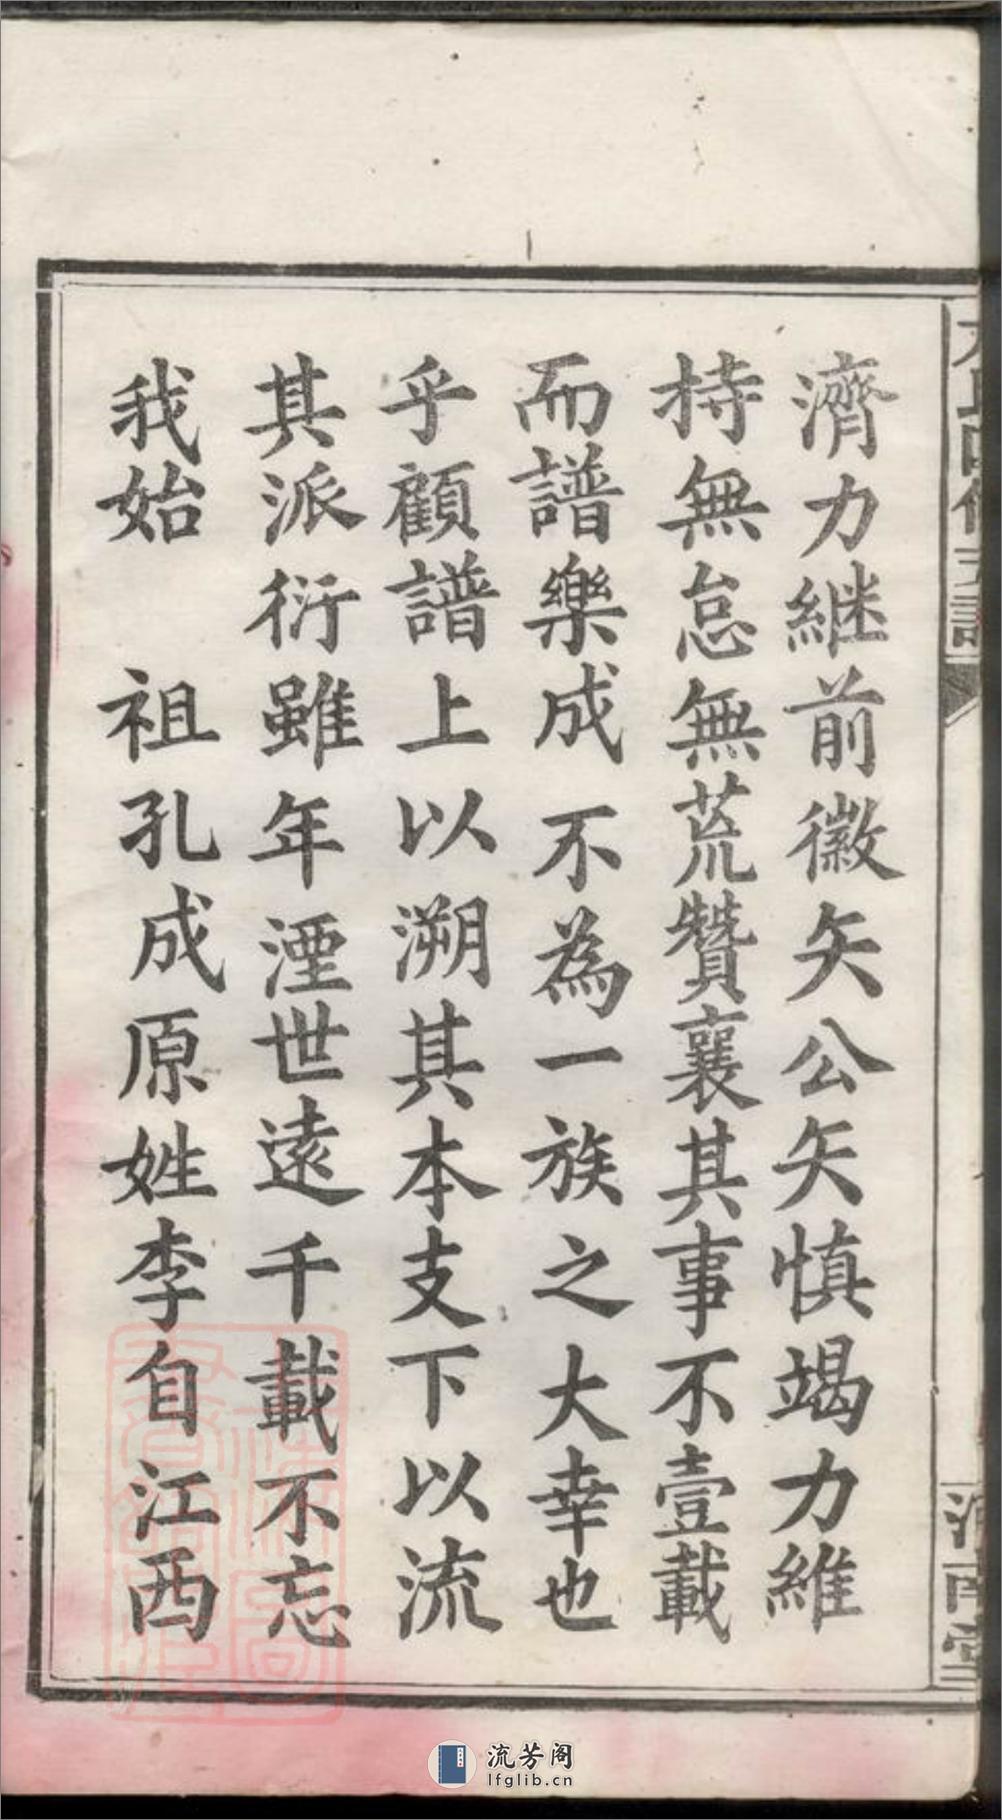 濟力継前徽矢公矢慎竭力維
持無怠無荒贊襄其事不壹載
而譜樂成不為一族之大幸也
乎顧譜上以溯其本支下以流
其派衍雖年湮世遠千載不忘
我始 祖孔成原姓李自江西
流芳阁
lfglib.cn